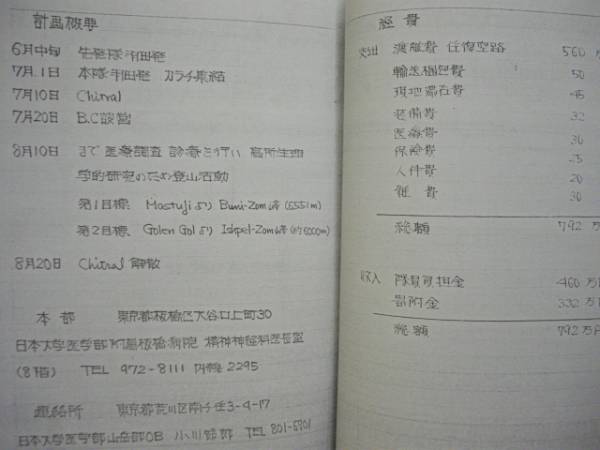 計画概要
6月中旬 先発隊羽田発
7月.1日 本隊羽田発 カラチ集結
7月10日 Chitral
7月20日 B.C設営
8月10日 まで 医療調査 診療を行い 高所生理
学的研究のため登山活動
第1目標 Mastujiより Buni-Zom峰 (6551m)
第2目標 Golen Golより Ishpel-Zom峰 (約6000m)
8月20日 Chitral 解散
本部 東京都板橋区大谷口上町30
日本大学医学部附属板橋病院 精神神経科医長室
(8階) TEL 972-8111 内線 2295
連絡所 東京都荒川区南千住3-4-17
日本大学医学部山岳部OB 小川 TEL 801-5701
経費
支出 渡航費 往復空路 560 万
輸送梱包費 50
現地滞在費 45
装備費 32
医療費 30
保険費 25
人件費 20
雑費 30
総額 792 万
収入 隊員負担金 460 万円
寄附金 332 万円
総額 792 万円